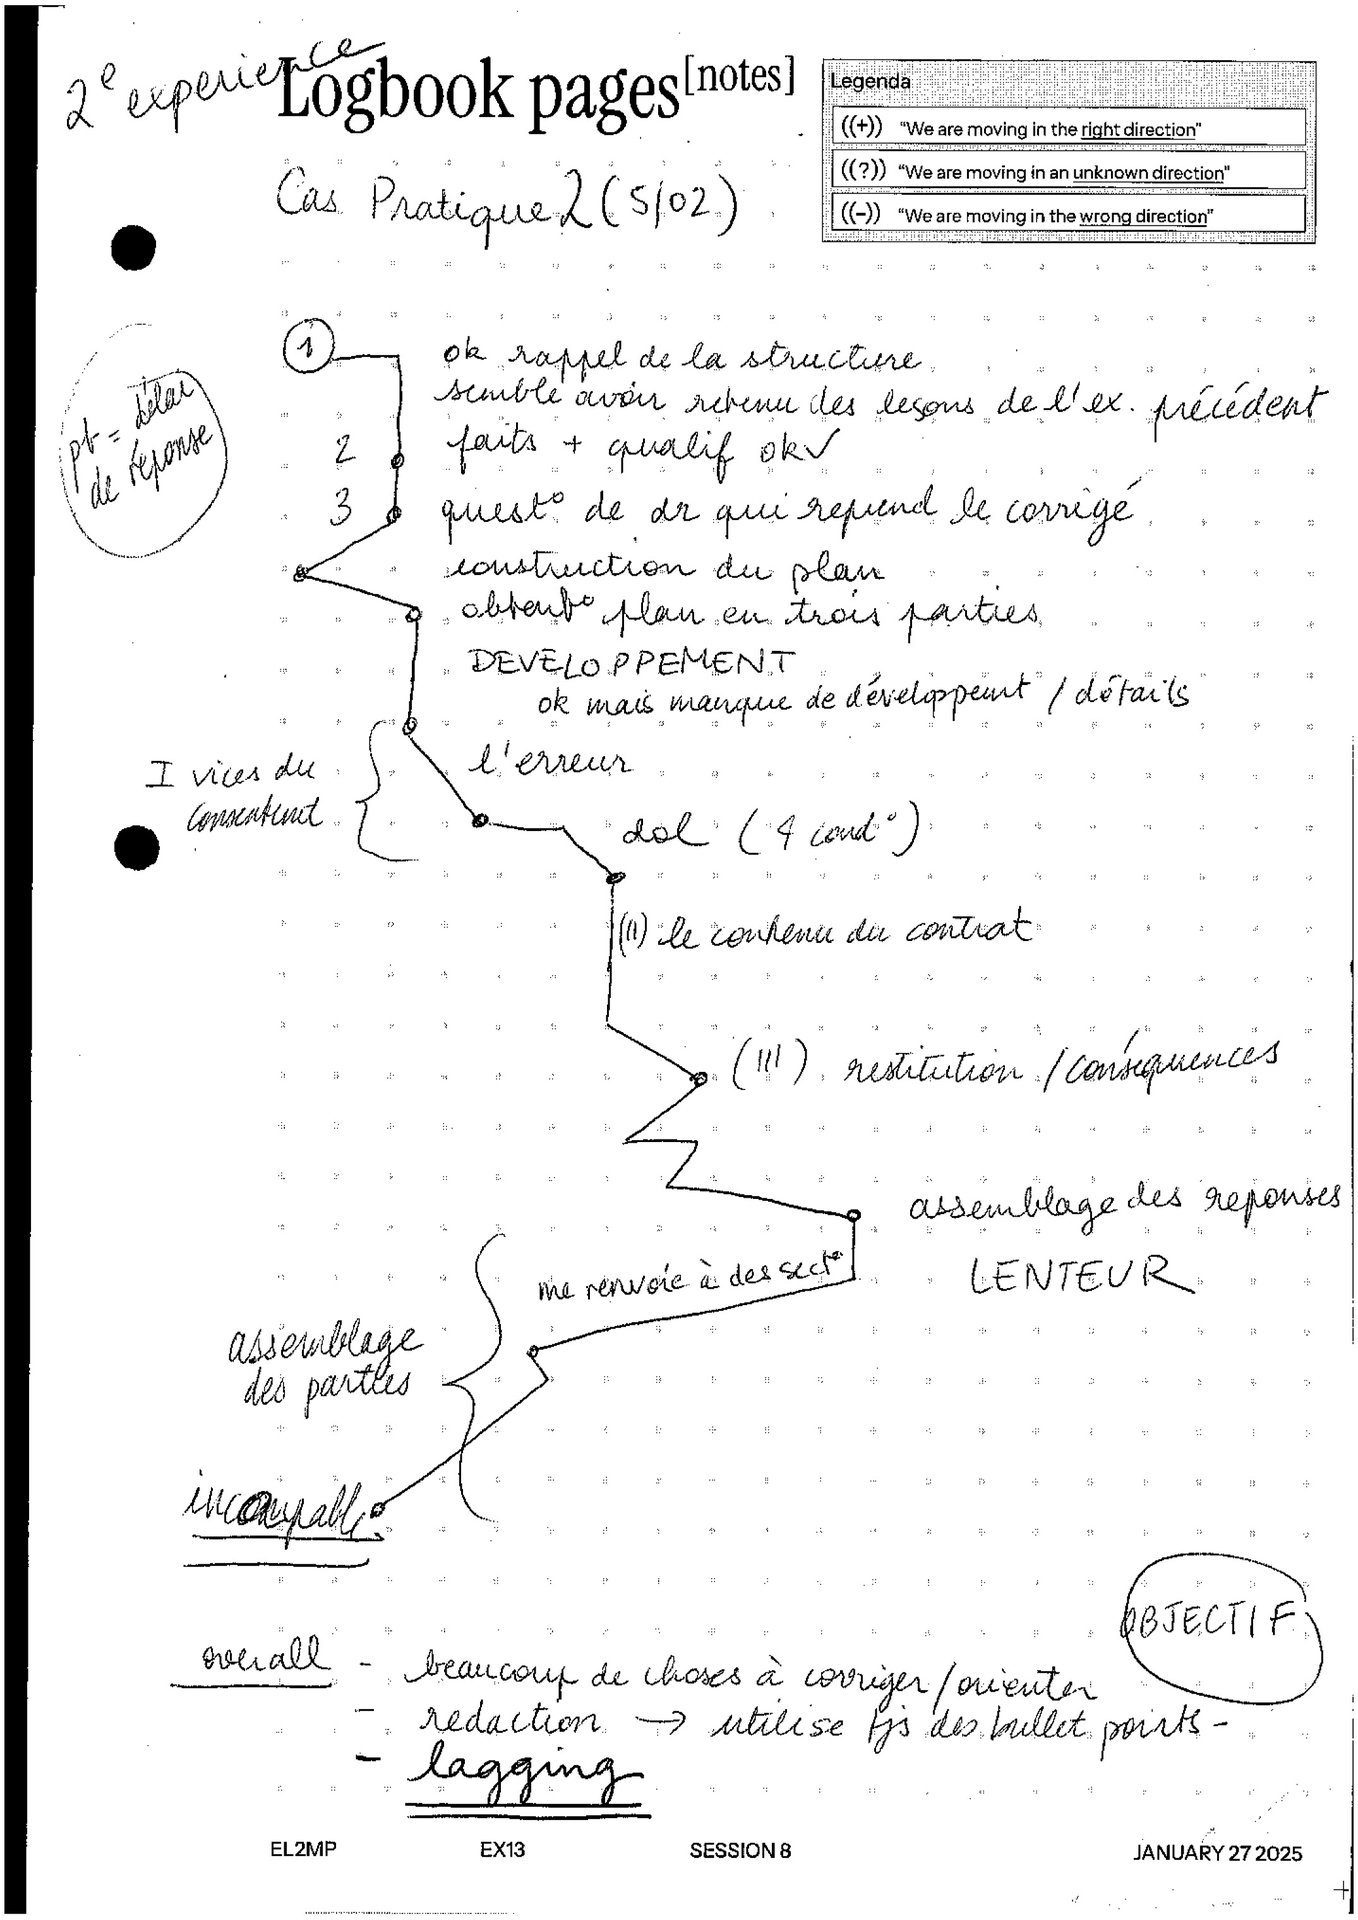 2e experience
Logbook pages [notes]
Legenda
((+)) "We are moving in the right direction"
((?)) "We are moving in an unknown direction"
((-)) "We are moving in the wrong direction"
Cas Pratique 2 (5/02)
1 ok rappel de la structure
semble avoir retenu des leçons de l'ex. précédent
pb = délai
de réponse
2 faits + qualif ok ✓
3 quest° de dr qui reprend le corrigé
construction du plan
obtent° plan en trois parties
DEVELOPPEMENT
ok mais manque de développemt / détails
I vices du
consentemt
l'erreur
dol (4 cond°)
(II) le contenu du contrat
(III) restitution / conséquences
assemblage des reponses
LENTEUR
me renvoie à des sect°
assemblage
des parties
incapable
OBJECTIF
overall - beaucoup de choses à corriger / orienter
- redaction → utilise tjs des bullet points -
- lagging
EL2MP EX13 SESSION 8 JANUARY 27 2025